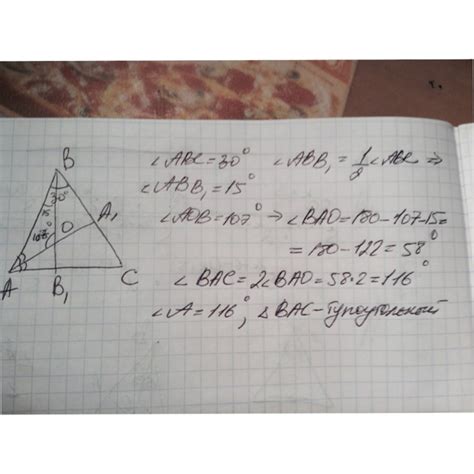 B
30°
15
A₁
O
107°
A B₁ C
∠ABC = 30° ∠ABB₁ = 1/2 ∠ABC ⇒
∠ABB₁ = 15°
∠AOB = 107° → ∠BAO = 180 - 107 - 15 =
= 180 - 122 = 58°
∠BAC = 2∠BAO = 58·2 = 116°
∠A = 116°, △BAC - тупоугольный